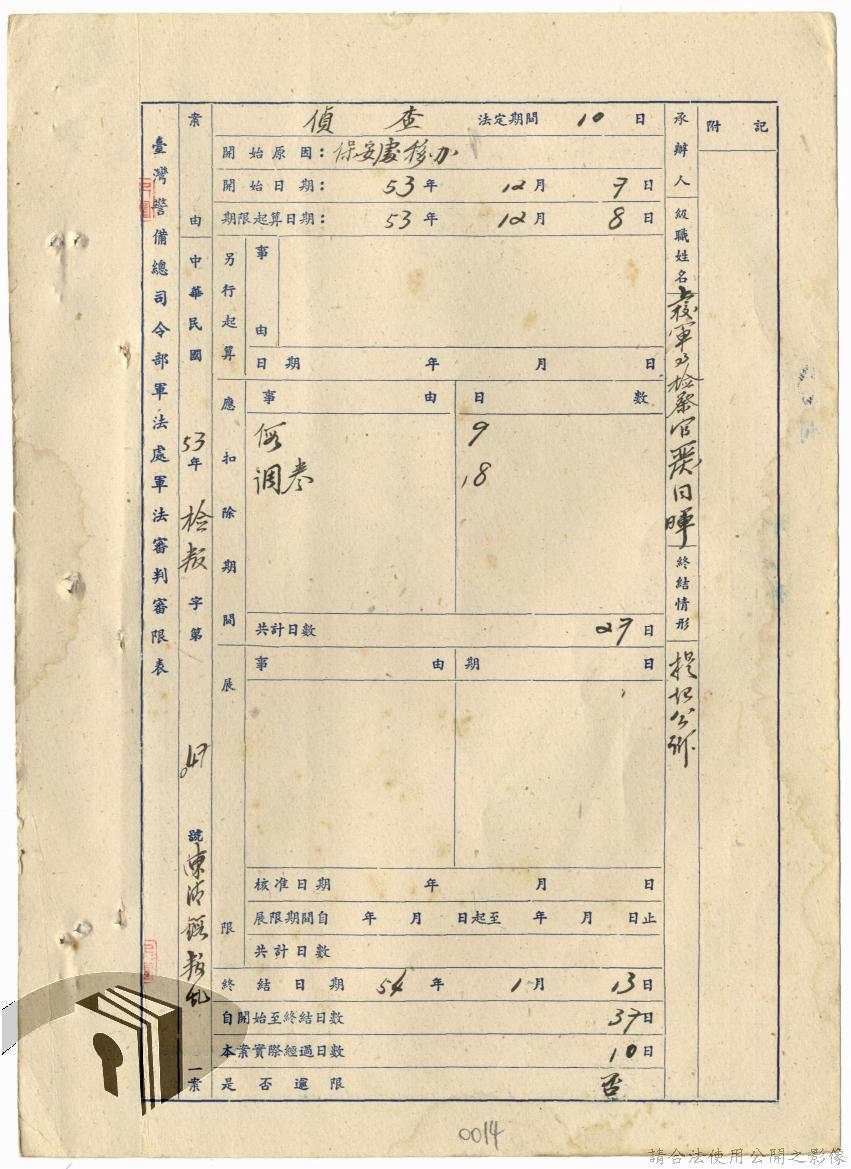 附記
承辦人
級職姓名 上校軍事檢察官 日暉
終結情形 提起公訴
偵查 法定期間 10 日
開始原因：保安處移办
開始日期：53年 12月 7日
期限起算日期：53年 12月 8日
另行起算
事由
日期 年 月 日
應扣除期間
事由 日數
假 9
調卷 18
共計日數 27日
展限
事由 期日
核准日期 年 月 日
展限期間自 年 月 日起至 年 月 日止
共計日數
終結日期 54年 1月 13日
自開始至終結日數 37日
本案實際經過日數 10日
是否逾限 否
案由 中華民國53年 檢叛字第 號 陳 叛乱一案
臺灣警備總司令部軍法處軍法審判審限表
0014
請合法使用公開之影像